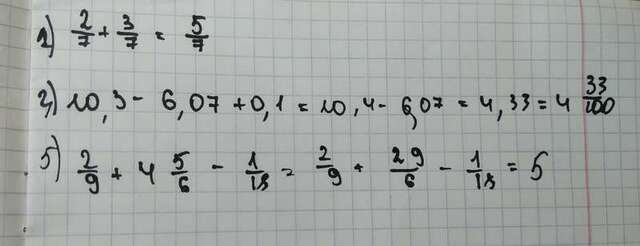 1) 2/7 + 3/7 = 5/7
2) 10,3 - 6,07 + 0,1 = 10,4 - 6,07 = 4,33 = 4 33/100
5) 2/9 + 4 5/6 - 1/18 = 2/9 + 29/6 - 1/18 = 5